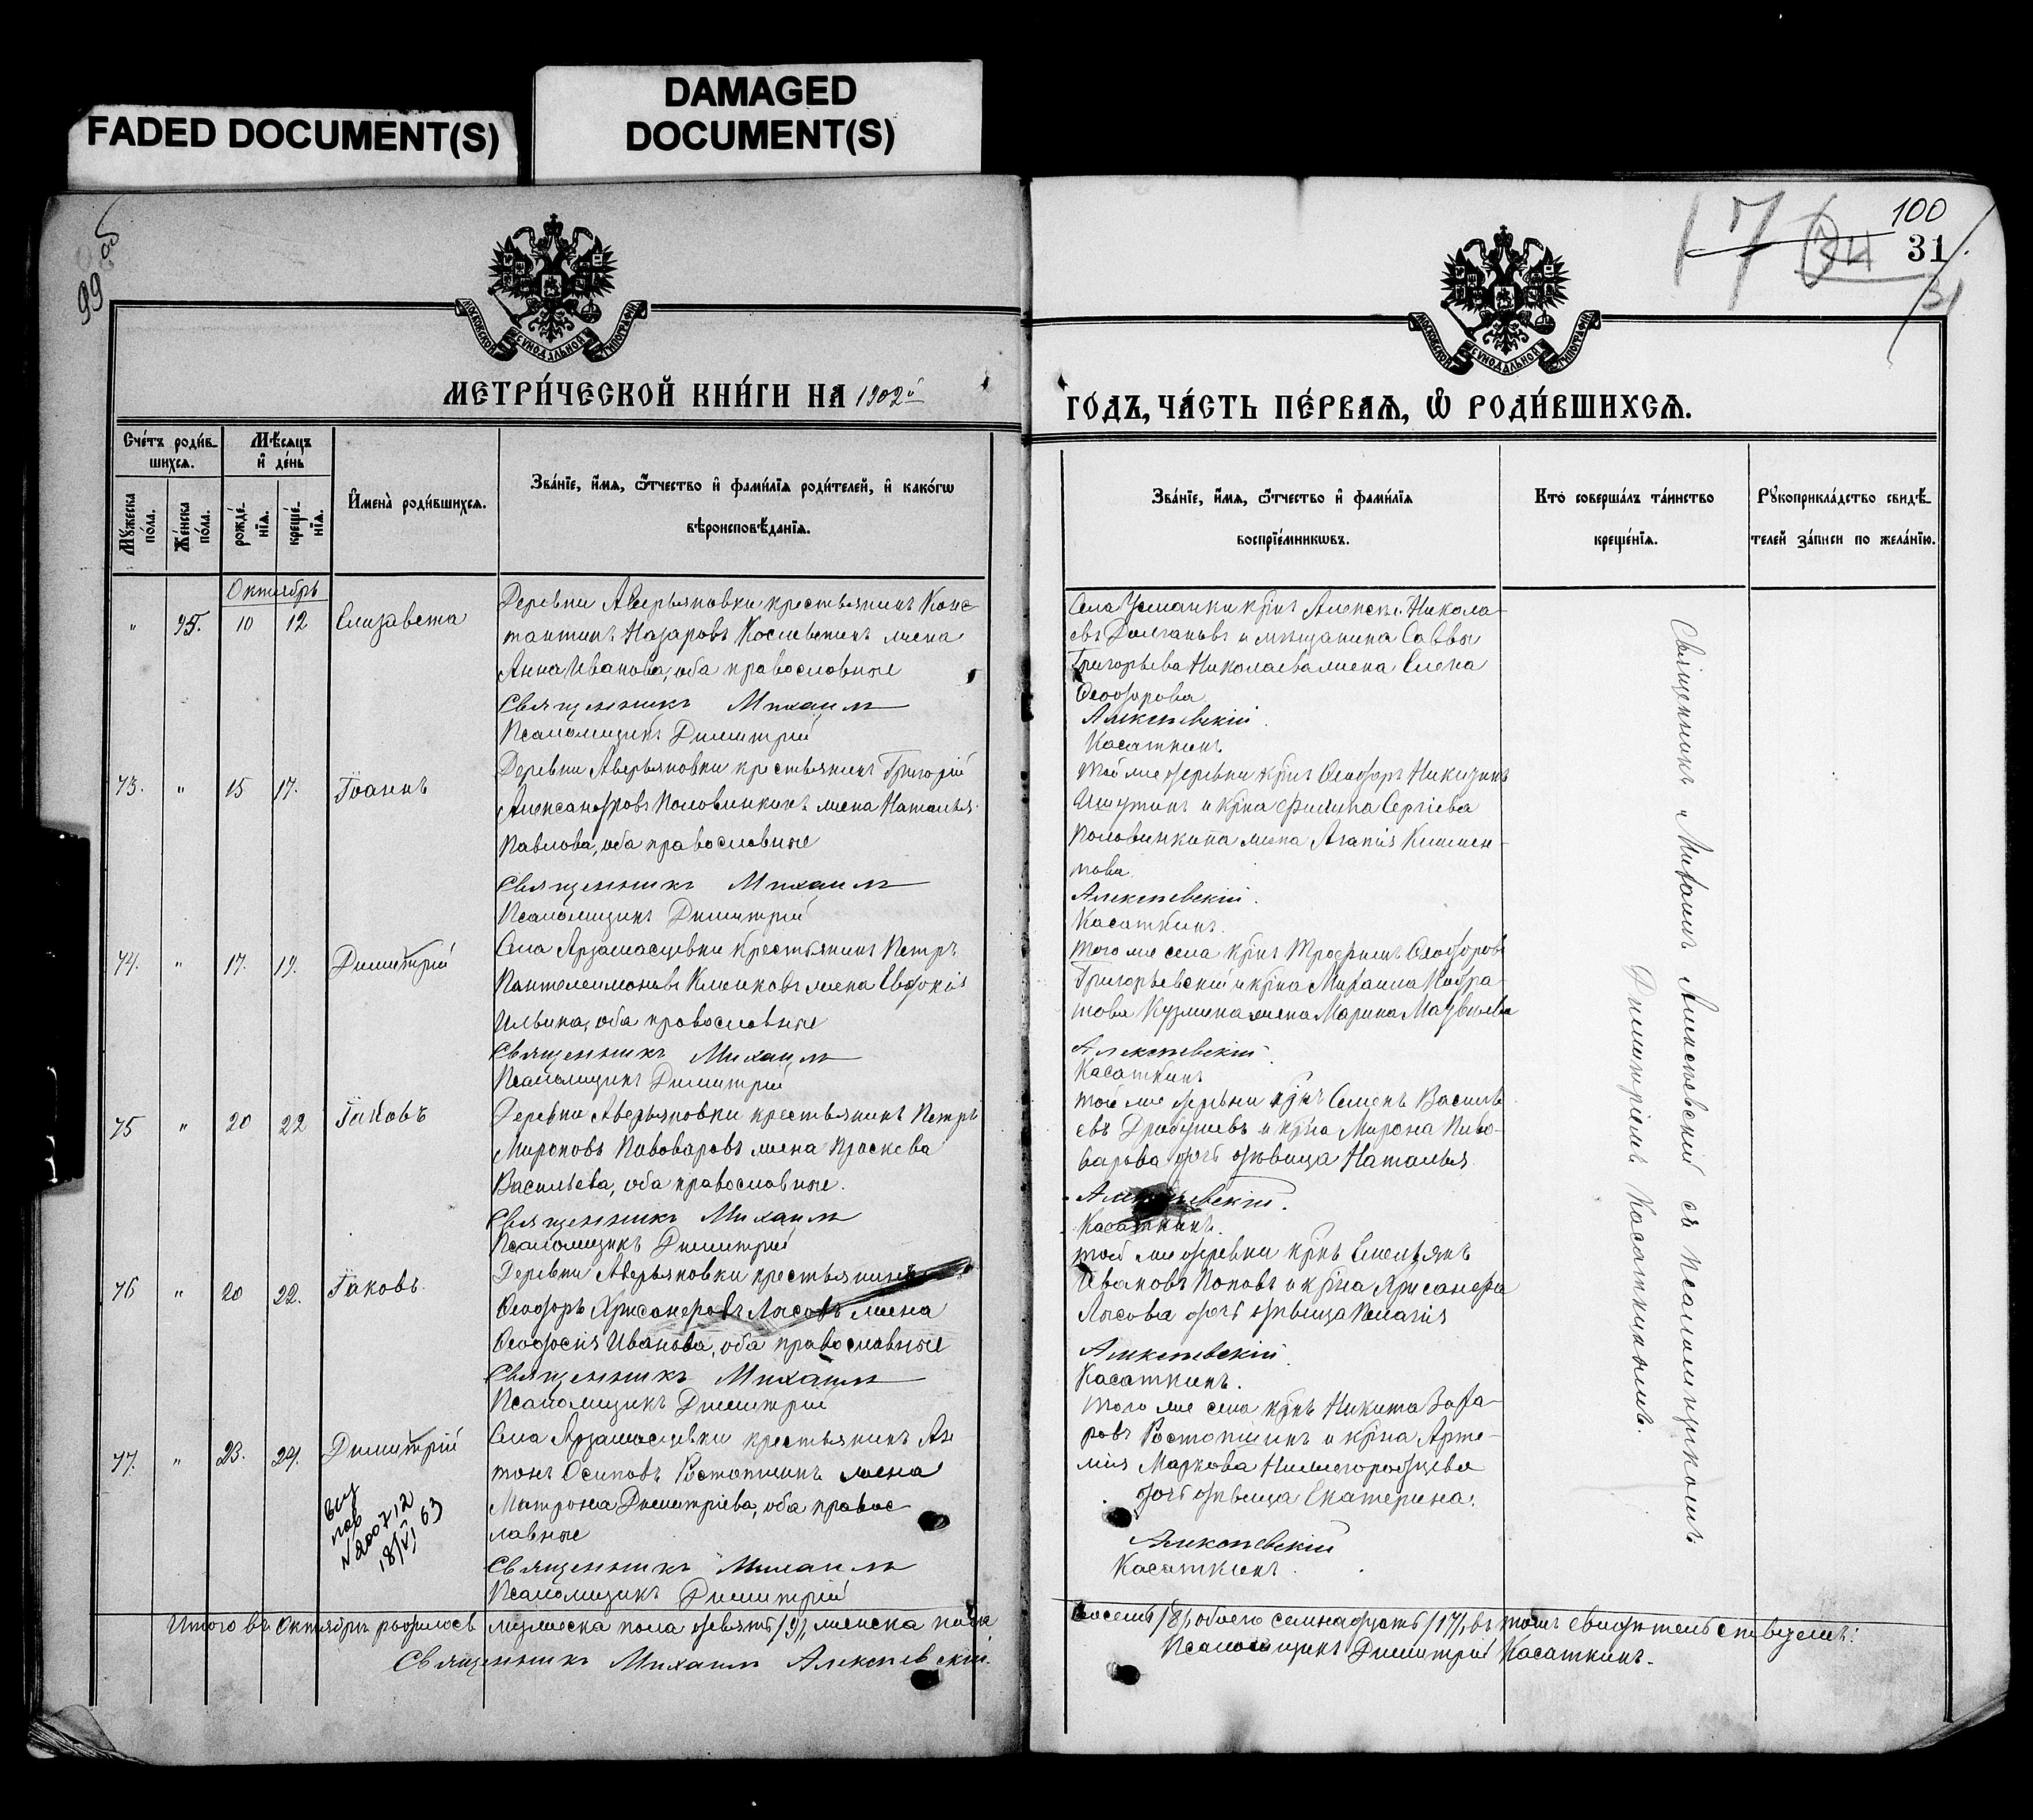 FADED DOCUMENT(S)
DAMAGED
DOCUMENT(S)
99 об
100
17
34
31
31
МОСКОВСКОЙ СУНОДАЛЬНОЙ ТИПОГРАФІИ
МОСКОВСКОЙ СУНОДАЛЬНОЙ ТИПОГРАФІИ
МЕТРИ́ЧЕСКОЙ КНИ́ГИ НА 1902й
ГО́ДЪ, ЧА́СТЬ ПЕ́РВАѦ, Ѡ҆ РОДИ́ВШИХСѦ.
Сче́тъ роди́в-
шихсѧ.
Мѣ́сяцъ
и҆ де́нь
Мꙋ́жеска
по́ла.
Же́нска
по́ла.
рожде́-
нїѧ.
креще́-
нїѧ.
И҆мена̀ роди́вшихсѧ.
Зва́нїе, и҆́мѧ, ѻ҆́тчество и҆ фами́лїѧ роди́телей, и҆ како́гѡ
вѣроисповѣ́данїѧ.
Зва́нїе, и҆́мѧ, ѻ҆́тчество и҆ фами́лїѧ
воспрїе́мникѡвъ.
Кто̀ соверша́лъ та́инство
креще́нїѧ.
Рꙋкоприкла́дство свидѣ́-
телей за́писи по жела́нїю.
Октябрь
" 95. 10 12 Елизавета
Деревни Аверьяновки крестьянинъ Конс-
тантинъ Назаровъ жена
Анна Иванова, оба православные
Священникъ Михаилъ
Псаломщикъ Димитрій
Села Усманки крнъ Алексѣй Никола-
евъ и мѣщанина Саввы
Григорьева Николаева жена Елена
Ѳеодорова
Алексѣевскій.
Касаткинъ.
73. " 15 17. Іоаннъ
Деревни Аверьяновки крестьянинъ Григорій
Александровъ Половинкинъ жена Наталья
Павлова, оба православные
Священникъ Михаилъ
Псаломщикъ Димитрій
Той же деревни крнъ Ѳеодоръ
и крна Филипа Сергіева
Половинкина жена Агапія Климен-
това.
Алексѣевскій.
Касаткинъ.
74. " 17. 19. Димитрій
Села Арзамасцевки крестьянинъ Петръ
Пантелеимоновъ жена Евдокія
Ильина, оба православные
Священникъ Михаилъ
Псаломщикъ Димитрій
Того же села крнъ Трофимъ Ѳеодоровъ
Григорьевскій и крна Михаила
Кузмина жена Марина
Алексѣевскій.
Касаткинъ
75 " 20 22 Іаковъ
Деревни Аверьяновки крестьянинъ Петръ
Мироновъ Пивоваровъ жена Праскева
Васильева, оба православные.
Священникъ Михаилъ
Псаломщикъ Димитрій
той же деревни крнъ Семенъ Василь-
евъ и крна Мирона Пиво-
варова дочь дѣвица Наталья
Алексѣевскій.
Касаткинъ.
76 " 20 22. Іаковъ.
Деревни Аверьяновки крестьянинъ
Ѳеодоръ Хрисанфовъ Лысовъ жена
Ѳеодосія Иванова, оба православные
Священникъ Михаилъ
Псаломщикъ Димитрій
той же деревни крнъ Емельянъ
Ивановъ Поповъ и крна Хрисанфа
Лысова дочь дѣвица Пелагія
Алексѣевскій.
Касаткинъ.
77. " 23. 24. Димитрій
№ 200712
18/VI 63
Села Арзамасцевки крестьянинъ Ан-
тонъ Осиповъ Ростопшинъ жена
Матрона Димитріева, оба правос-
лавные
Священникъ Михаилъ
Псаломщикъ Димитрій
того же села крнъ Никита Заха-
ровъ Ростопшинъ и крна Арте-
мія Маркова Нижегородцева
дочь дѣвица Екатерина.
Алексѣевскій
Касаткинъ.
Священникъ Михаилъ Алексѣевскій съ псаломщикомъ
Димитріемъ Касаткинымъ.
Итого въ октябрѣ родилось мужеска пола девять /9/, женска пола восемь /8/, обоего семнадцать /17/, въ томъ свидѣтельствуемъ:
Священникъ Михаилъ Алексѣевскій.
Псаломщикъ Димитрій Касаткинъ.